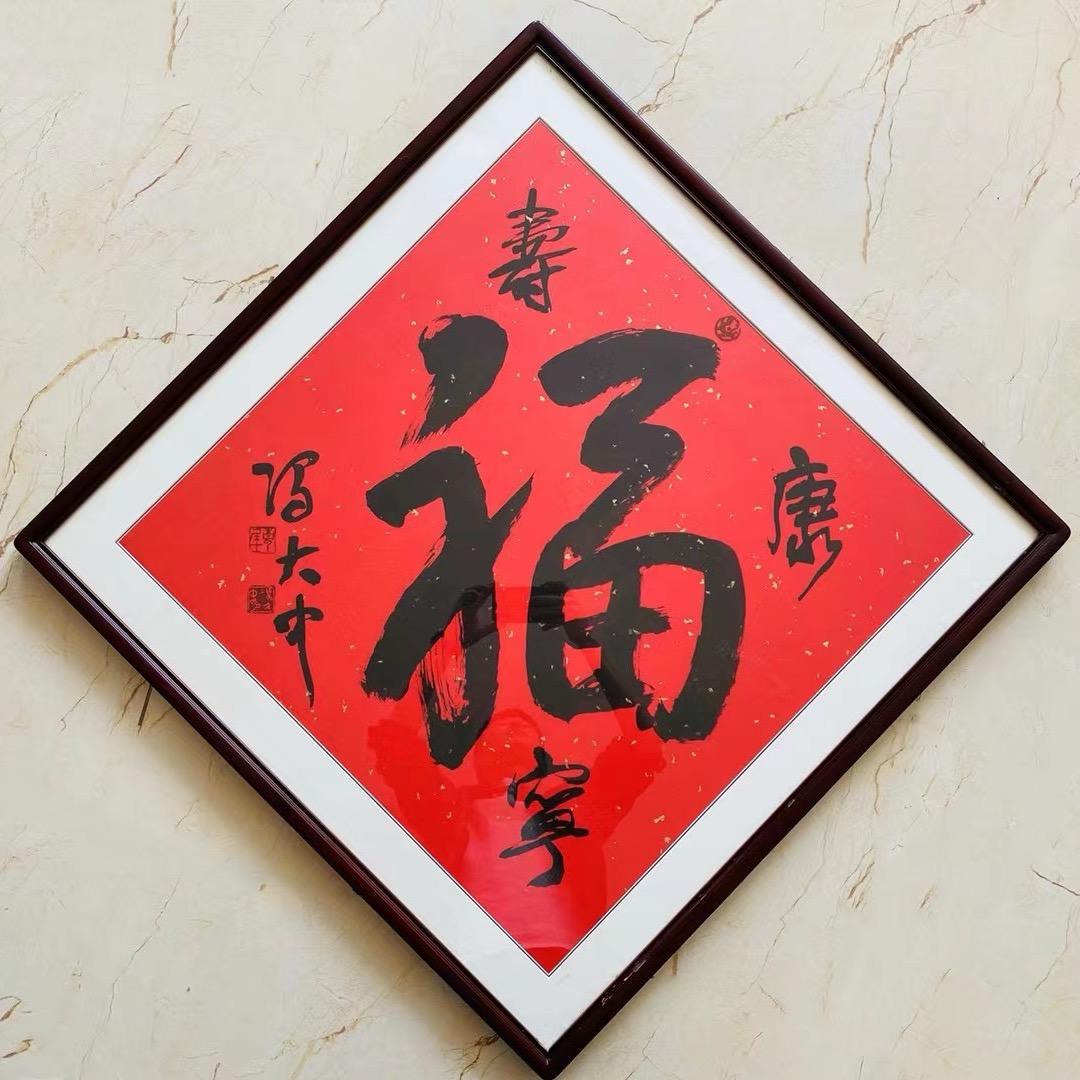 壽
福
康
寧
馮大中